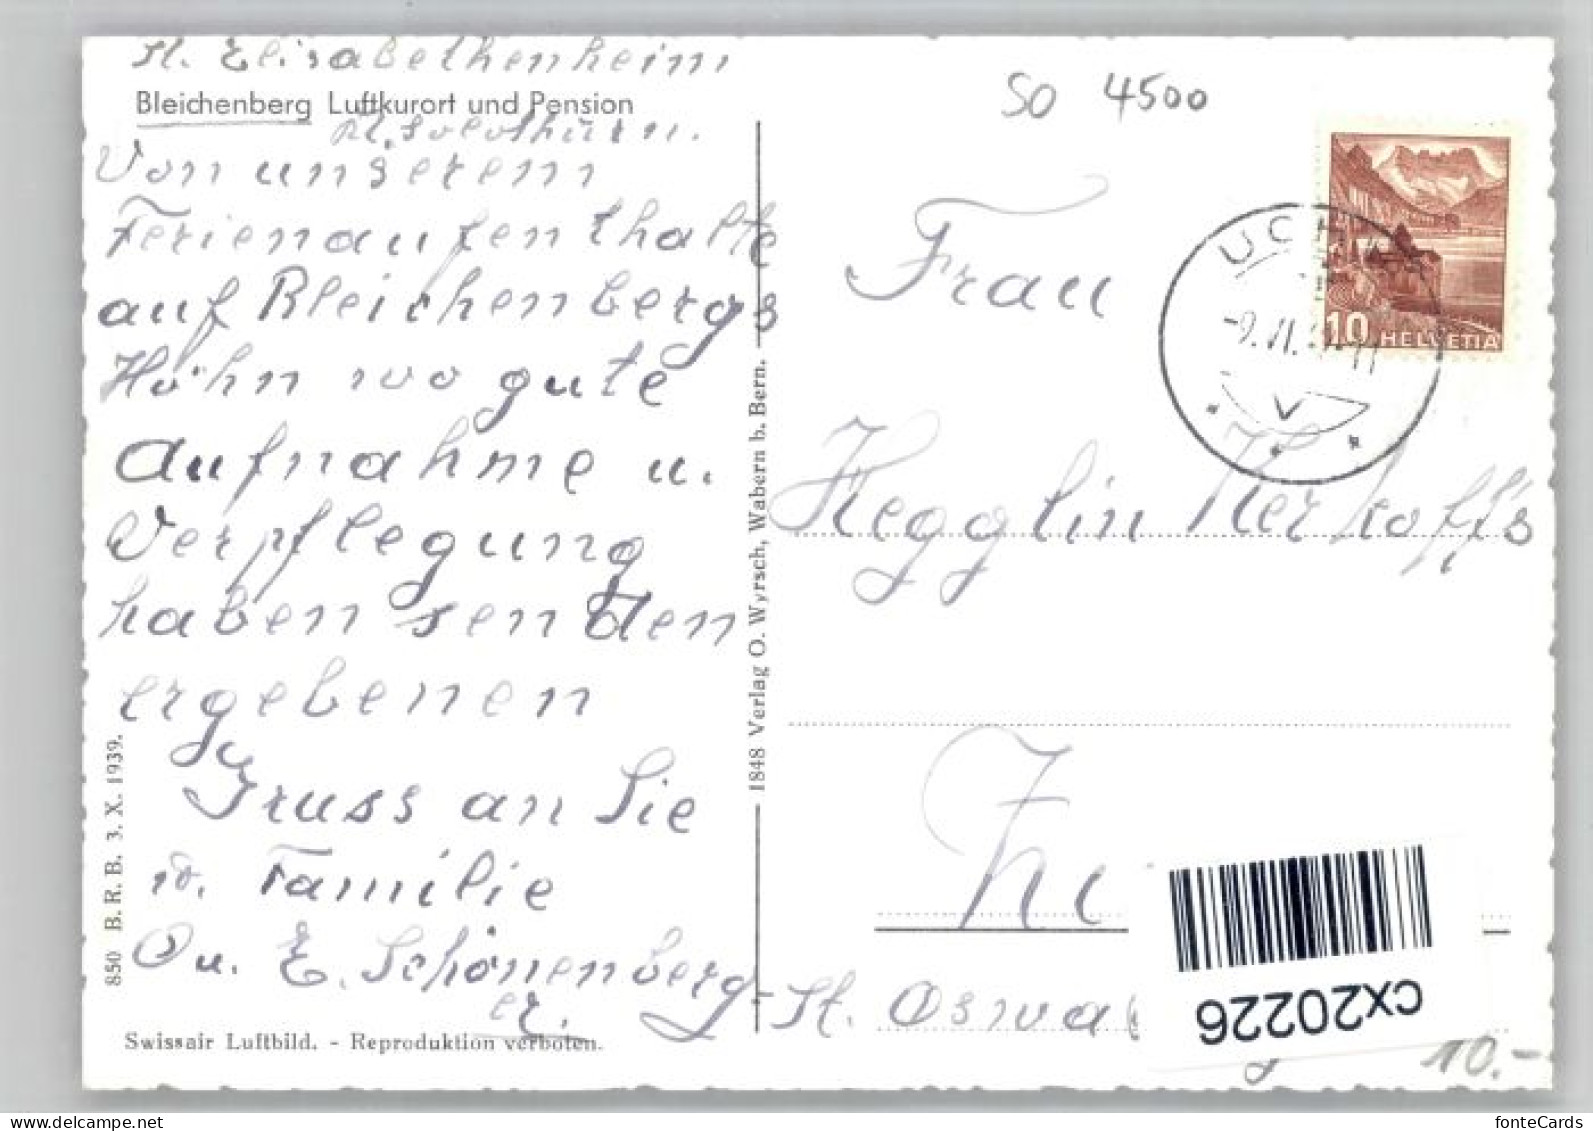 St. Elisabethenheim
Bleichenberg Luftkurort und Pension
b. Solothurn.
Von unserem
Ferienaufenthalte
auf Bleichenbergs
Höhn wo gute
Aufnahme u.
Verpflegung
haben senden
ergebenen
Gruss an Sie
w. Familie
O u. E. Schönenberg-
er.
Swissair Luftbild. - Reproduktion verboten.
850 B. R. B. 3. X. 1939.
1848 Verlag O. Wyrsch, Wabern b. Bern.
SO 4500
10 HELVETIA
Frau
Hegglin Kerkoffs
St. Oswal
cx20226
10.-
fonteCards